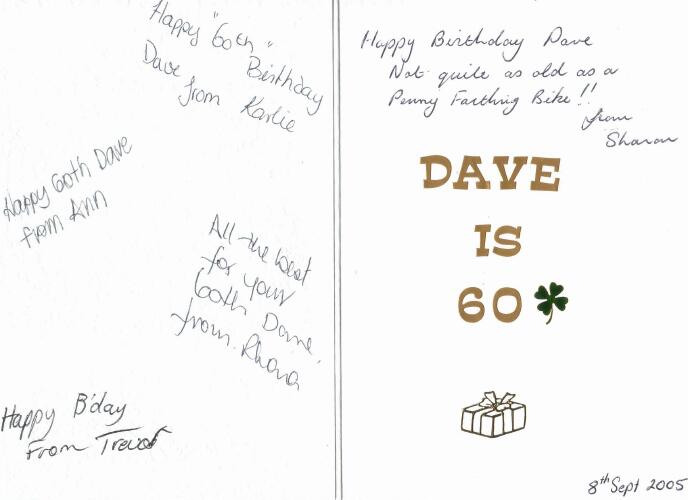 Happy "60th"
Birthday
Dave
from Karlie
Happy 60th Dave
from Ann
All the best
for your
60th Dave,
from Rhona
Happy B'day
From Trevor
Happy Birthday Dave
Not quite as old as a
Penny Farthing Bike!!
from
Sharon
DAVE
IS
60
8th Sept 2005